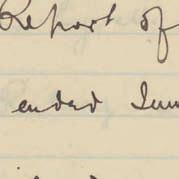 Report of
ended